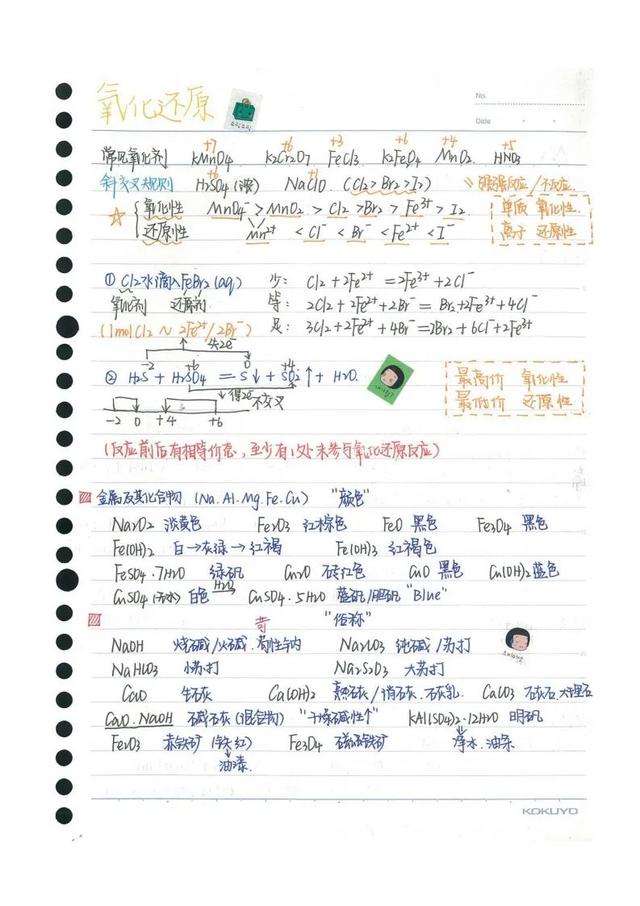 氧化还原
No.
Date
+7 +6 +3 +6 +4 +5
常见氧化剂 KMnO4 K2Cr2O7 FeCl3 K2FeO4 MnO2 HNO3
斜交叉规则 H2SO4(浓) NaClO (Cl2>Br2>I2) 强强反应/不反应
☆ 氧化性 MnO4⁻>MnO2>Cl2>Br2>Fe³⁺>I2 单质 氧化性
还原性 Mn²⁺<Cl⁻<Br⁻<Fe²⁺<I⁻ 离子 还原性
① Cl2水滴入FeBr2(aq) 少: Cl2+2Fe²⁺=2Fe³⁺+2Cl⁻
氧化剂 还原剂 等: 2Cl2+2Fe²⁺+2Br⁻=Br2+2Fe³⁺+4Cl⁻
(1molCl2~2Fe²⁺/2Br⁻) 足: 3Cl2+2Fe²⁺+4Br⁻=2Br2+6Cl⁻+2Fe³⁺
失2e⁻
-2 0 +4
② H2S+H2SO4=S↓+SO2↑+H2O 最高价 氧化性
+6 得2e⁻ 不交叉 最低价 还原性
-2 0 +4 +6
(反应前后有相等价态,至少有1处未参与氧化还原反应)
金属及其化合物 (Na.Al.Mg.Fe.Cu) "颜色"
Na2O2 淡黄色 Fe2O3 红棕色 FeO 黑色 Fe3O4 黑色
Fe(OH)2 白→灰绿→红褐 Fe(OH)3 红褐色
FeSO4·7H2O 绿矾 Cu2O 砖红色 CuO 黑色 Cu(OH)2 蓝色
CuSO4(无水) 白色 H2O→ CuSO4·5H2O 蓝矾/胆矾 "Blue"
"俗称"
苛
NaOH 烧碱/火碱.苛性钠 Na2CO3 纯碱/苏打
NaHCO3 小苏打 Na2S2O3 大苏打
CaO 生灰 Ca(OH)2 熟石灰/消石灰.石灰乳. CaCO3 石灰石.大理石
CaO.NaOH 碱石灰(混合物) "干燥碱性个" KAl(SO4)2·12H2O 明矾
Fe2O3 赤铁矿 (铁红) Fe3O4 磁铁矿 净水.油条
油漆.
KOKUYO